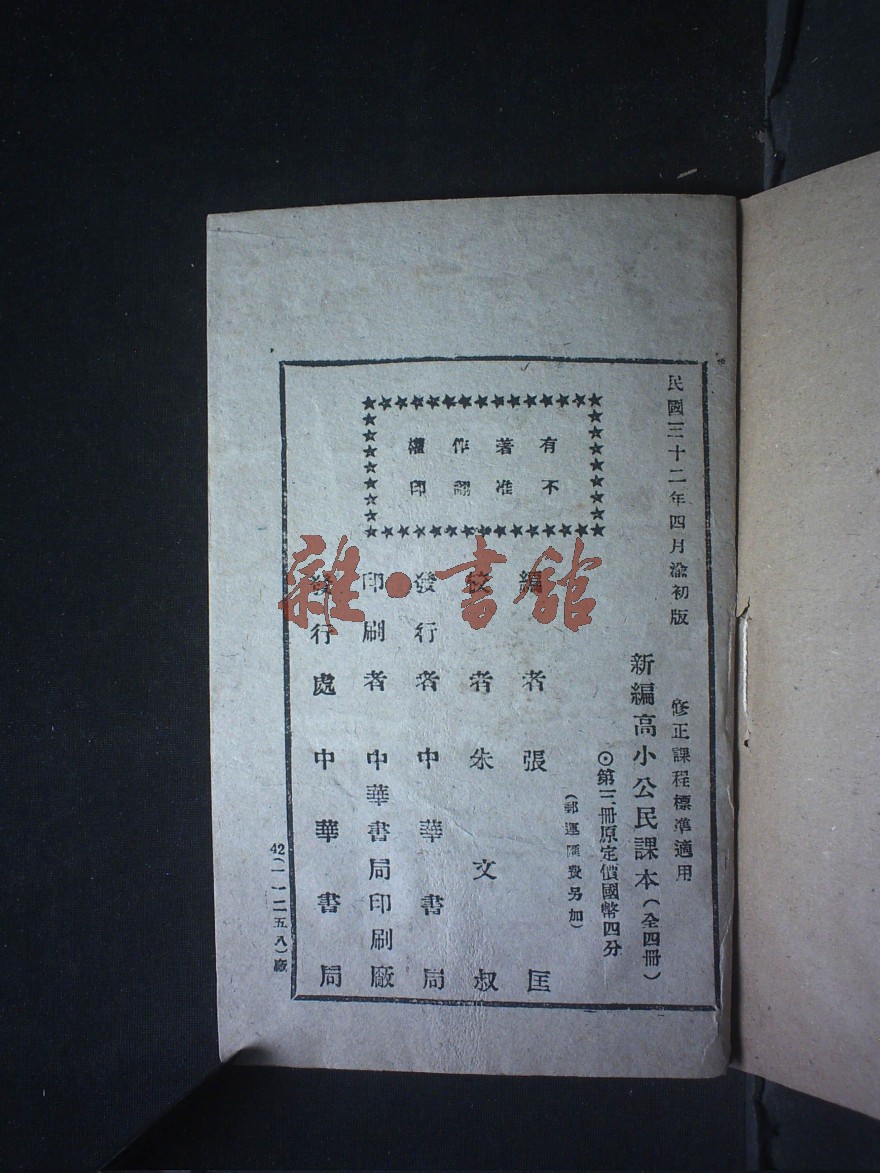 民國三十二年四月渝初版
修正課程標準適用
新編高小公民課本(全四冊)
⊙第三冊原定價國幣四分
(郵運匯費另加)
有著作權
不准翻印
編者張匡
校者朱文叔
發行者中華書局
印刷者中華書局印刷廠
發行處中華書局
42(一一二五八)廠
雜·書館